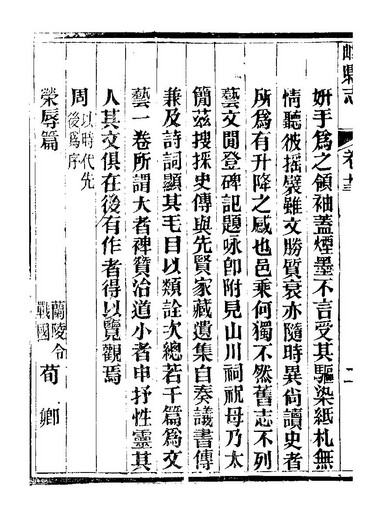 嶧縣志
卷廿三
二
妍手為之領袖蓋煙墨不言受其驅染紙札無
情聽彼搖襞雖文勝質衰亦隨時異尚讀史者
所為有升降之感也邑乘何獨不然舊志不列
藝文閒登碑記題咏卽附見山川祠祀毋乃太
簡茲搜採史傳與先賢家藏遺集自奏議書傳
兼及詩詞顯其毛目以類詮次總若干篇為文
藝一卷所謂大者裨贊治道小者申抒性靈其
人其文俱在後有作者得以覽觀焉
周以時代先後為序
榮辱篇 戰國蘭陵令荀卿